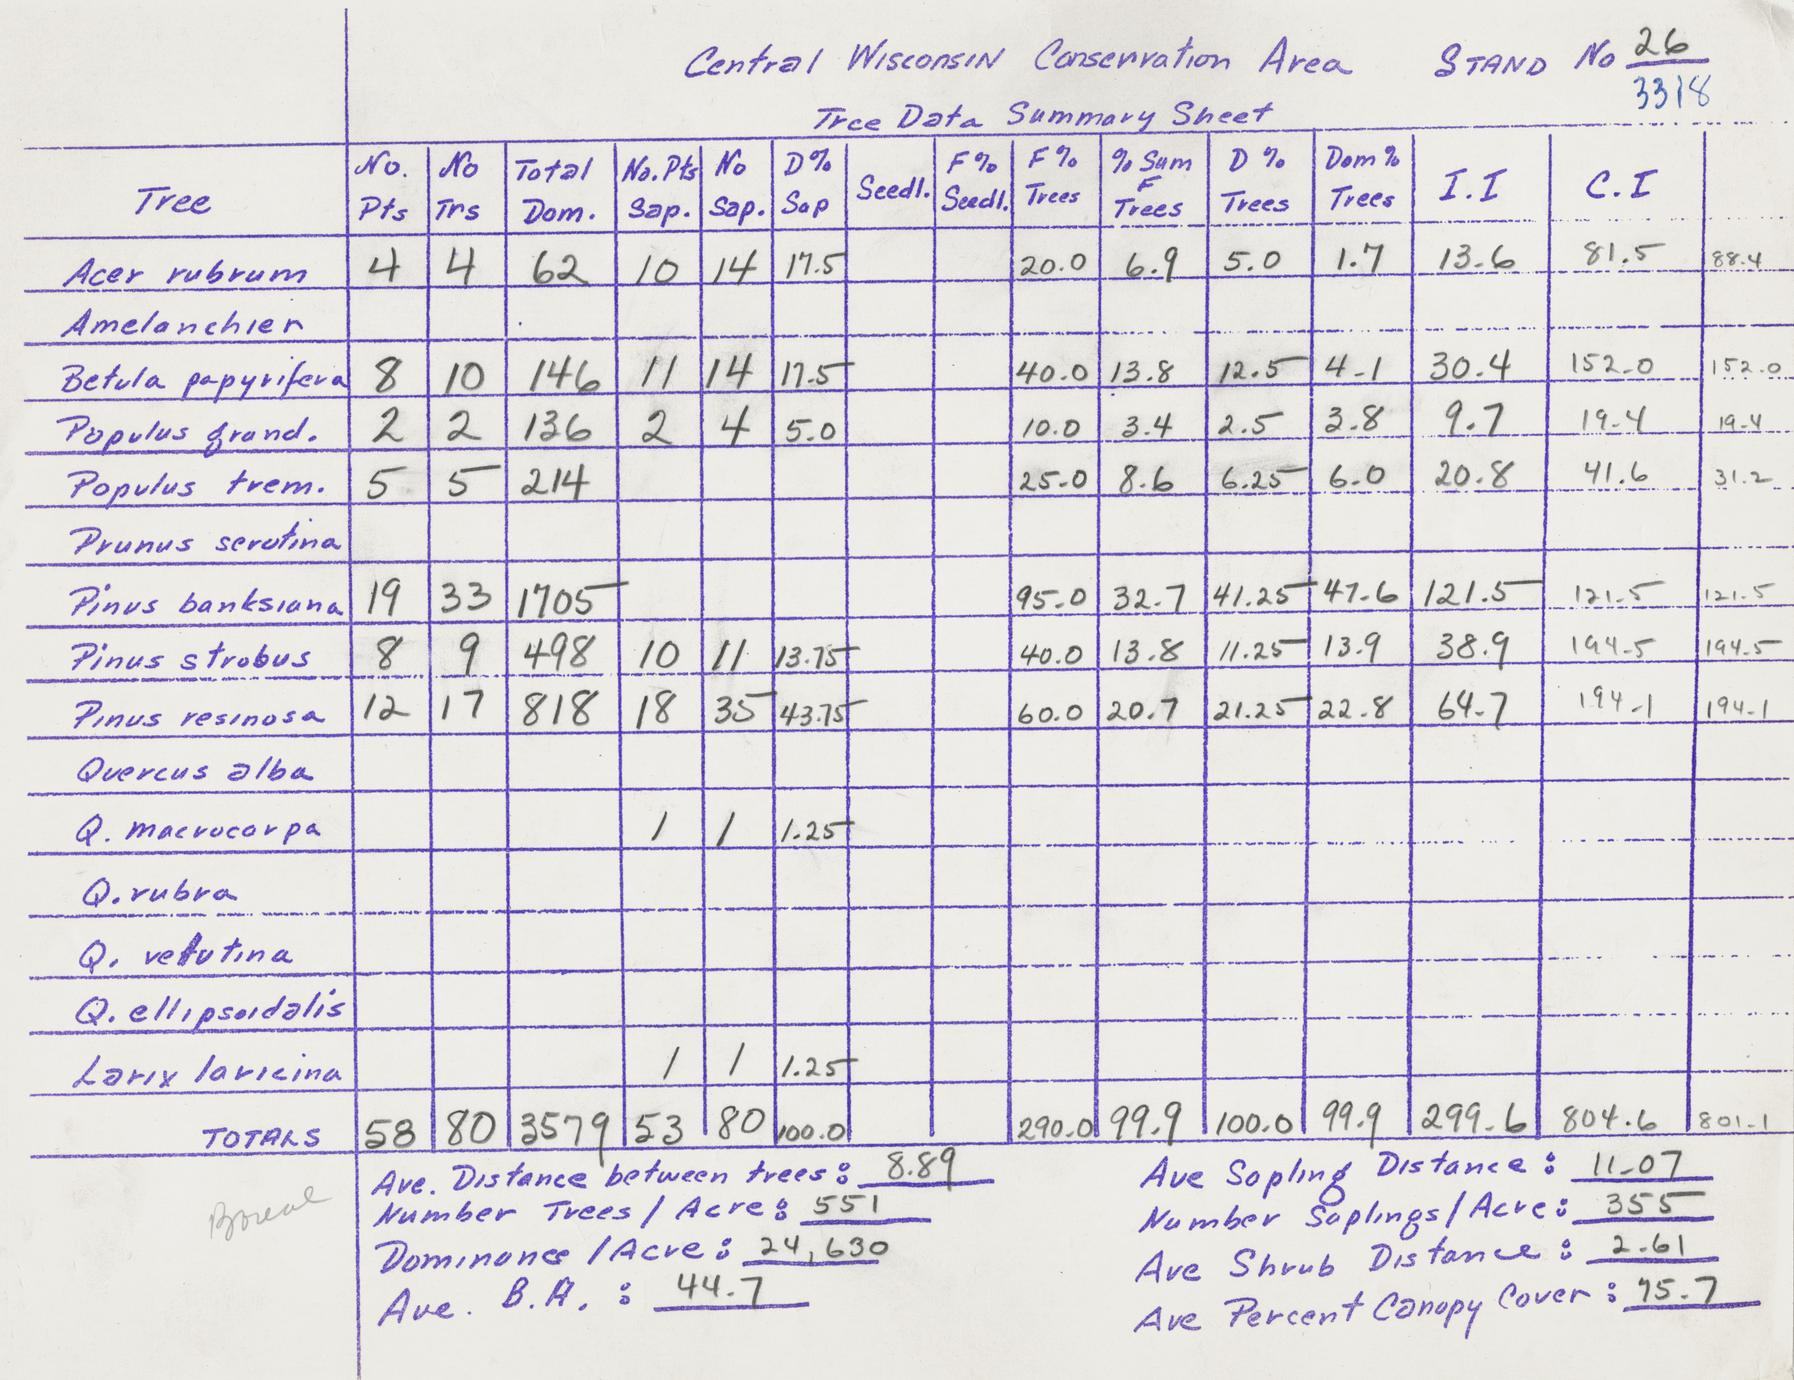 Central Wisconsin Conservation Area STAND No 26
3318
Tree Data Summary Sheet
Tree No. Pts No Trs Total Dom. No. Pts Sap. No Sap. D% Sap Seedl. F% Seedl. F% Trees % Sum F Trees D % Trees Dom % Trees I.I C.I
Acer rubrum 4 4 62 10 14 17.5 20.0 6.9 5.0 1.7 13.6 81.5 88.4
Amelanchier
Betula papyrifera 8 10 146 11 14 17.5 40.0 13.8 12.5 4.1 30.4 152.0 152.0
Populus grand. 2 2 136 2 4 5.0 10.0 3.4 2.5 3.8 9.7 19.4 19.4
Populus trem. 5 5 214 25.0 8.6 6.25 6.0 20.8 41.6 31.2
Prunus serotina
Pinus banksiana 19 33 1705 95.0 32.7 41.25 47.6 121.5 121.5 121.5
Pinus strobus 8 9 498 10 11 13.75 40.0 13.8 11.25 13.9 38.9 194.5 194.5
Pinus resinosa 12 17 818 18 35 43.75 60.0 20.7 21.25 22.8 64.7 194.1 194.1
Quercus alba
Q. macrocarpa 1 1 1.25
Q. rubra
Q. velutina
Q. ellipsoidalis
Larix laricina 1 1 1.25
TOTALS 58 80 3579 53 80 100.0 290.0 99.9 100.0 99.9 299.6 804.6 801.1
Ave. Distance between trees: 8.89 Ave Sapling Distance: 11.07
Number Trees / Acre: 551 Number Saplings/Acre: 355
Dominance /Acre: 24,630 Ave Shrub Distance: 2.61
Ave. B.A. : 44.7 Ave Percent Canopy Cover: 75.7
Boreal